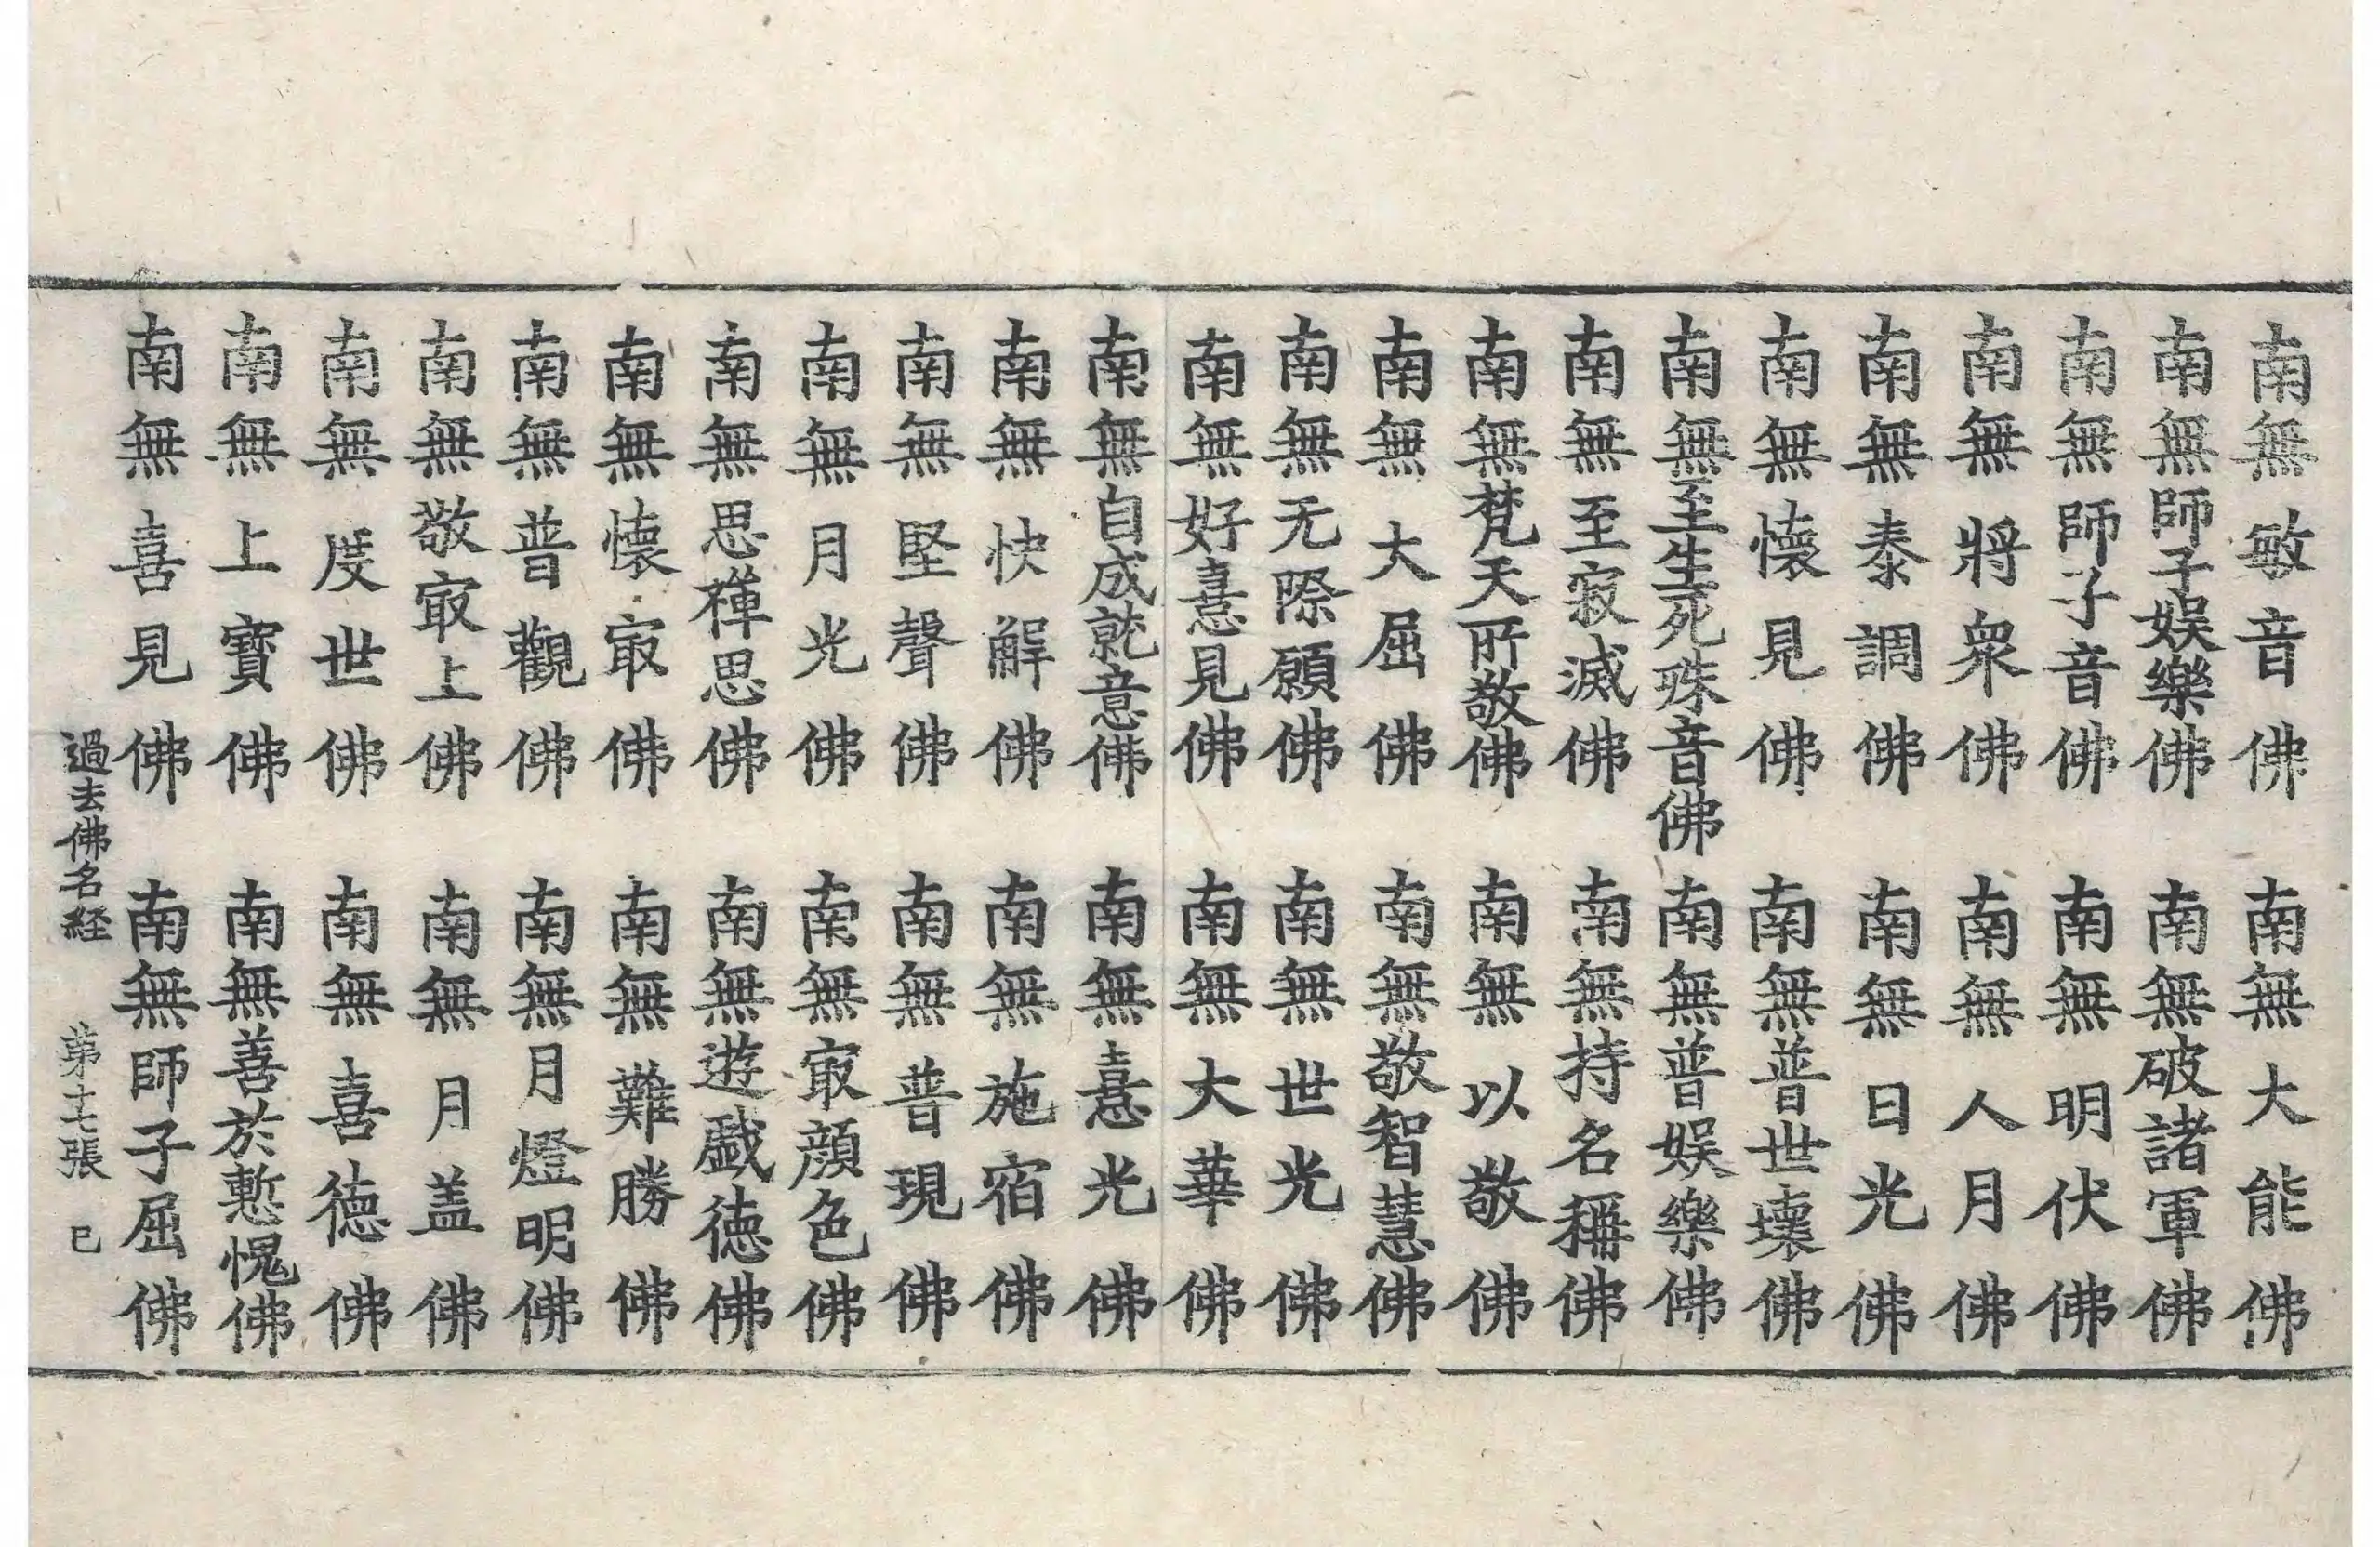 南無敏音佛 南無大能佛
南無師子娯樂佛 南無破諸軍佛
南無師子音佛 南無明伏佛
南無將衆佛 南無人月佛
南無泰調佛 南無日光佛
南無懐見佛 南無普世壊佛
南無至生死殊音佛 南無普娯樂佛
南無至寂滅佛 南無持名稱佛
南無梵天所敬佛 南無以敬佛
南無大屈佛 南無敬智慧佛
南無无際願佛 南無世光佛
南無好憙見佛 南無大華佛
南無自成就意佛 南無憙光佛
南無快解佛 南無施宿佛
南無堅聲佛 南無普現佛
南無月光佛 南無㝡顔色佛
南無思禪思佛 南無遊戯徳佛
南無懐㝡佛 南無難勝佛
南無普觀佛 南無月燈明佛
南無敬㝡上佛 南無月盖佛
南無度世佛 南無喜徳佛
南無上寶佛 南無善於慙愧佛
南無喜見佛 南無師子屈佛
過去佛名経 苐十七張 巳